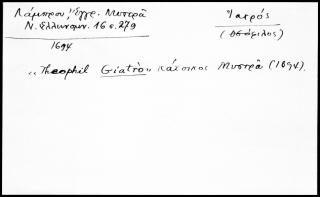 Λάμπρου, Ἔγγρ. Μυστρᾶ Ἰατρός
Ν. Ἑλληνομν. 16 σ. 279 (Θεόφιλος)
1694
„Theophil Giatrò" κάτοικος Μυστρᾶ (1694).